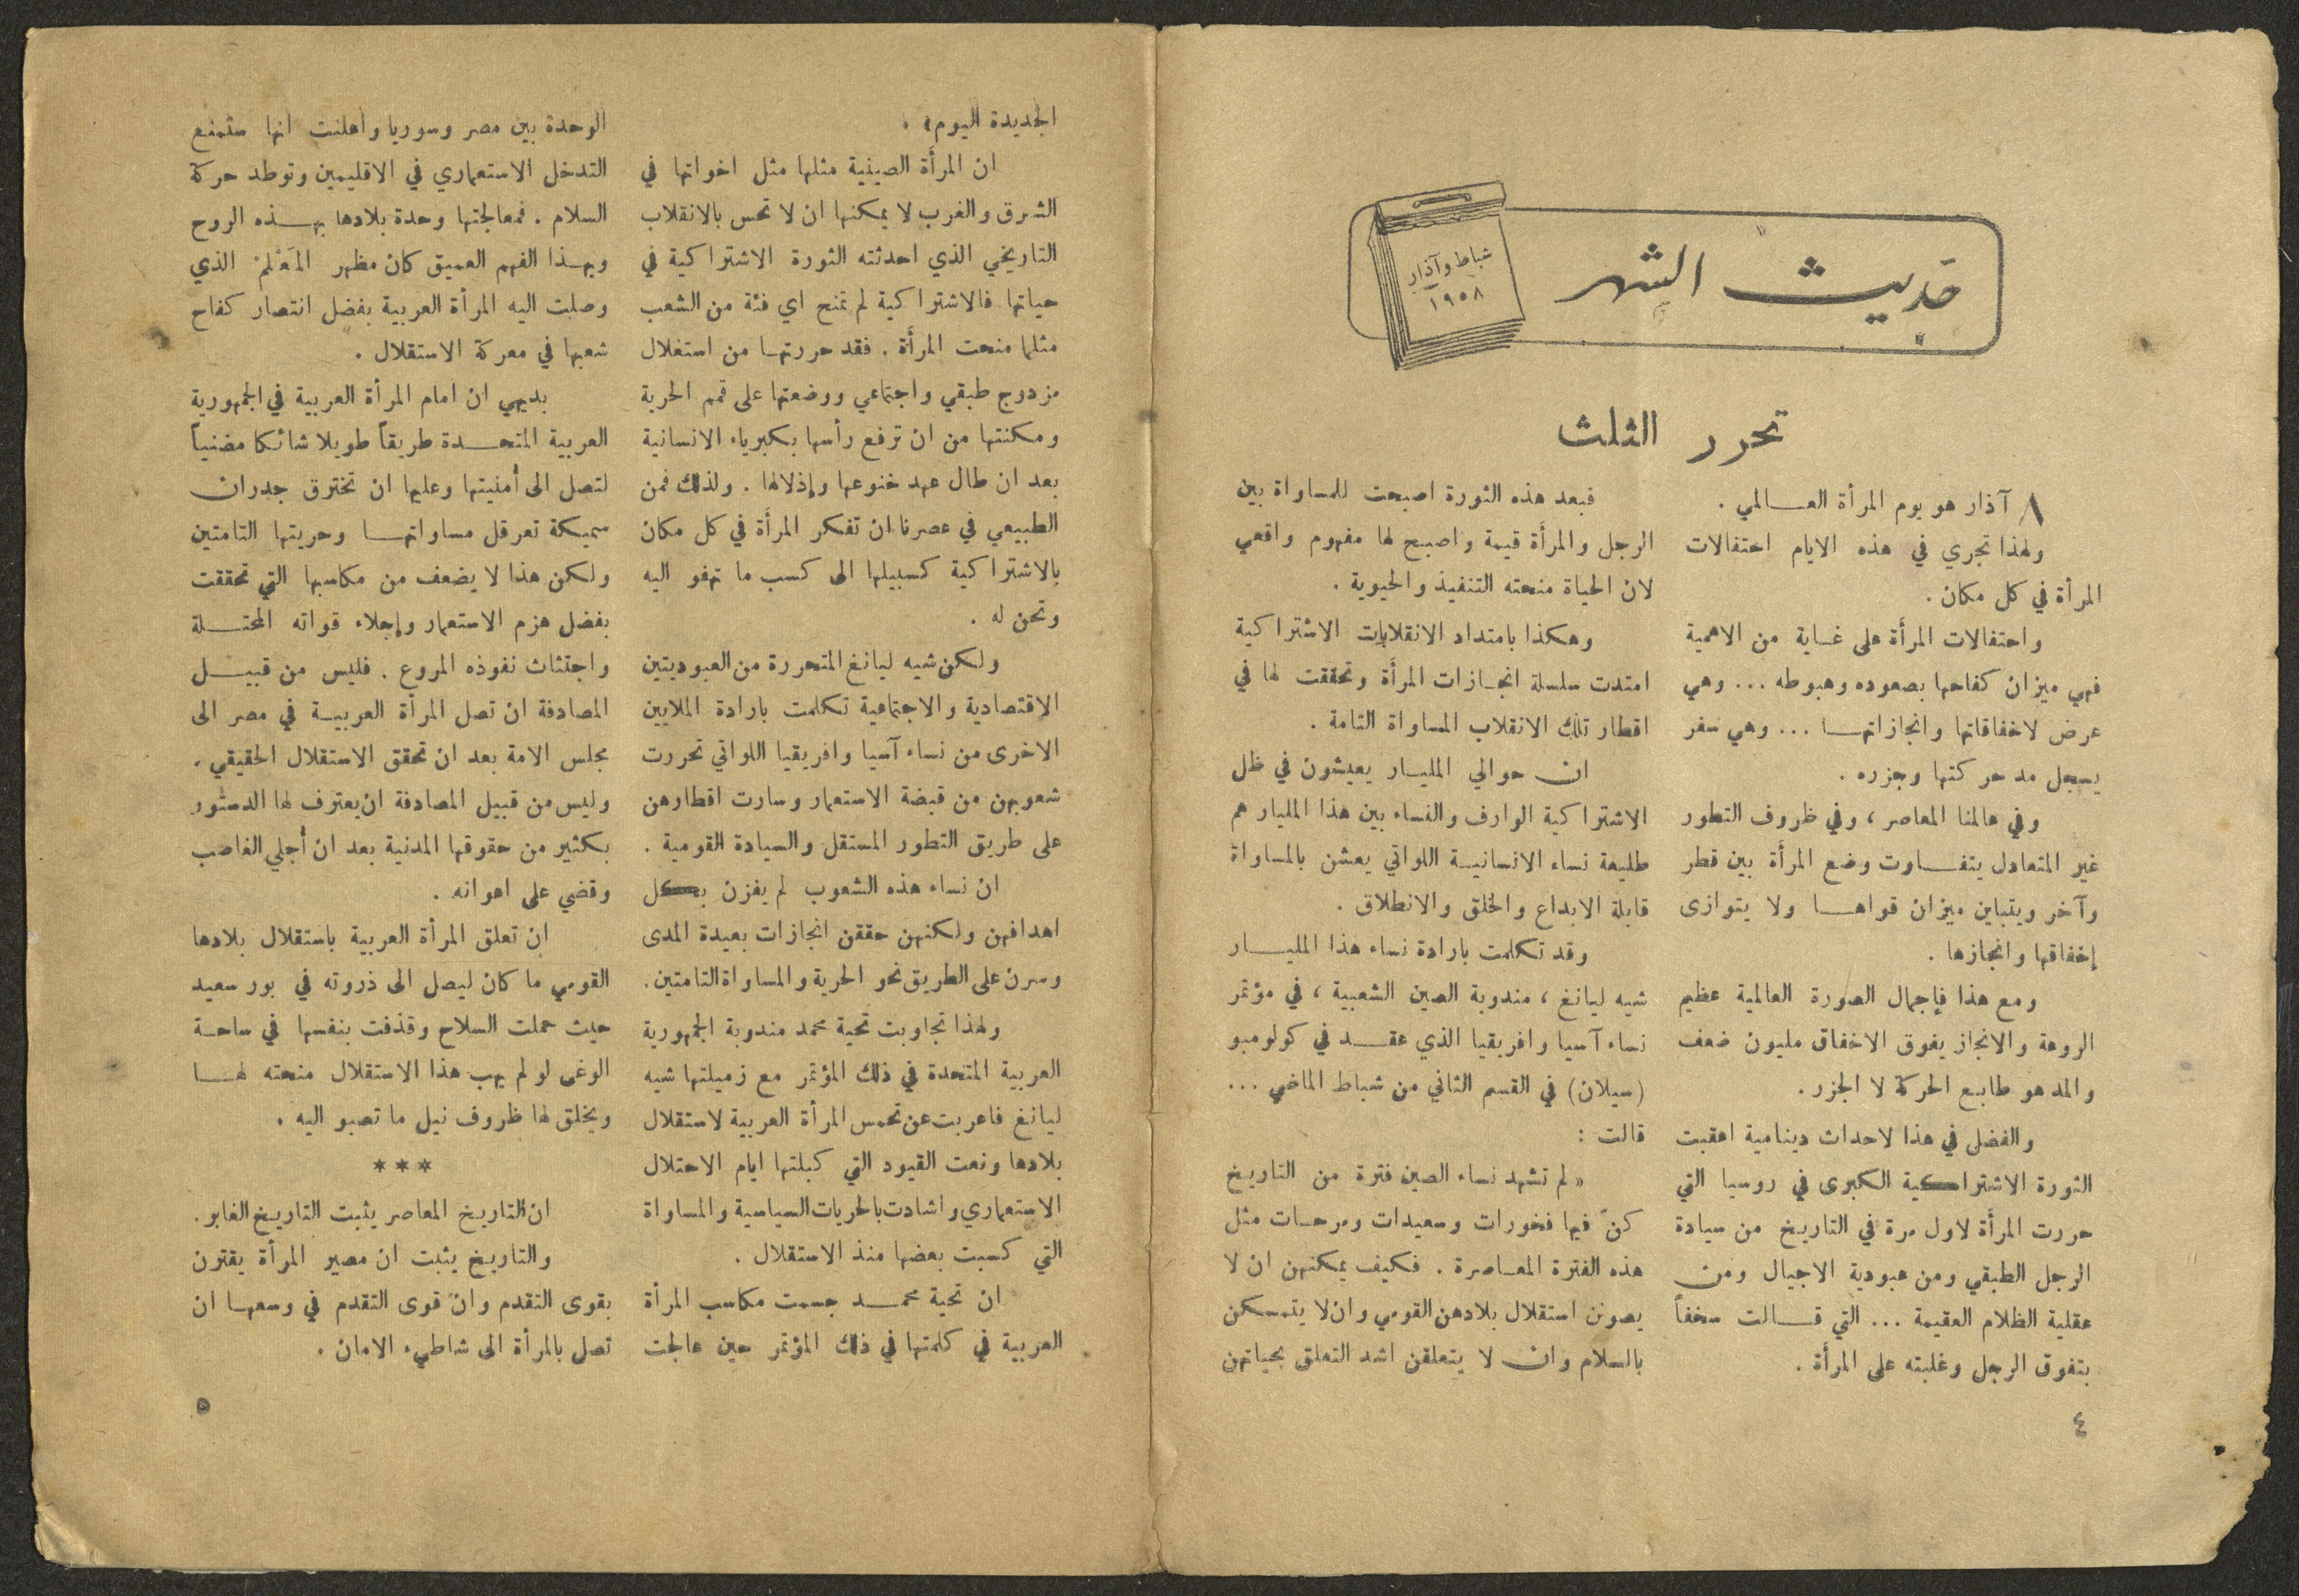 حديث الشهر
شباط وآذار
١٩٥٨
تحرر الثلث
٨ آذار هو يوم المرأة العـالمي .
ولهذا تجري في هذه الايام احتفالات
المرأة في كل مكان .
واحتفالات المرأة على غـاية من الاهمية
فهي ميزان كفاحها بصعوده وهبوطه ... وهي
عرض لاخفاقاتها وانجازاتهـا ... وهي سفر
يسجل مد حركتها وجزره .
وفي عالمنا المعاصر ، وفي ظروف التطور
غير المتعادل يتفـاوت وضع المرأة بين قطر
وآخر ويتباين ميزان قواهـا ولا يتوازى
إخفاقها وانجازها .
ومع هذا فإجمال الصورة العالمية عظيم
الروعة والانجاز يفوق الاخفاق مليون ضعف
والمد هو طابع الحركة لا الجزر .
والفضل في هذا لاحداث دينامية اعقبت
الثورة الاشتراكية الكبرى في روسيا التي
حررت المرأة لاول مرة في التاريخ من سيادة
الرجل الطبقي ومن عبودية الاجيال ومن
عقلية الظلام العقيمة ... التي قـالت سخفاً
بتفوق الرجل وغلبته على المرأة .
٤
فبعد هذه الثورة اصبحت للمساواة بين
الرجل والمرأة قيمة واصبح لها مفهوم واقعي
لان الحياة منحته التنفيذ والحيوية .
وهكذا بامتداد الانقلابات الاشتراكية
امتدت سلسلة انجـازات المرأة وتحققت لها في
اقطار تلك الانقلاب المساواة التامة .
ان حوالي المليـار يعيشون في ظل
الاشتراكية الوارف والنساء بين هذا المليار هم
طليعة نساء الانسانيـة اللواتي يعشن بالمساواة
قابلة الابداع والخلق والانطلاق .
وقد تكلمت بارادة نساء هذا المليـار
شيه ليانغ ، مندوبة الصين الشعبية ، في مؤتمر
نساء آسيا وافريقيا الذي عقـد في كولومبو
(سيلان) في القسم الثاني من شباط الماضي ...
قالت :
« لم تشهد نساء الصين فترة من التاريخ
كنّ فيها فخورات وسعيدات ومرحـات مثل
هذه الفترة المعـاصرة . فكيف يمكنهن ان لا
يصونن استقلال بلادهن القومي وان لا يتمسكن
بالسلام وان لا يتعلقن اشد التعلق بحياتهن
الجديدة اليوم» .
ان المرأة الصينية مثلها مثل اخواتها في
الشرق والغرب لا يمكنها ان لا تحس بالانقلاب
التاريخي الذي احدثته الثورة الاشتراكية في
حياتها. فالاشتراكية لم تمنح اي فئة من الشعب
مثلما منحت المرأة . فقد حررتهـا من استغلال
مزدوج طبقي واجتماعي ووضعتها على قمم الحرية
ومكنتها من ان ترفع رأسها بكبرياء الانسانية
بعد ان طال عهد خنوعها وإذلالها . ولذلك فمن
الطبيعي في عصرنا ان تفكر المرأة في كل مكان
بالاشتراكية كسبيلها الى كسب ما تهفو اليه
وتحن له .
ولكن شيه ليانغ المتحررة من العبوديتين
الاقتصادية والاجتماعية تكلمت بارادة الملايين
الاخرى من نساء آسيا وافريقيا اللواتي تحررت
شعوبهن من قبضة الاستعمار وسارت اقطارهن
على طريق التطور المستقل والسيادة القومية .
ان نساء هذه الشعوب لم يفزن بكل
اهدافهن ولكنهن حققن انجازات بعيدة المدى
وسرن على الطريق نحو الحرية والمساواة التامتين .
ولهذا تجاوبت تحية محمد مندوبة الجمهورية
العربية المتحدة في ذلك المؤتمر مع زميلتها شيه
ليانغ فاعربت عن تحمس المرأة العربية لاستقلال
بلادها ونعت القيود التي كبلتها ايام الاحتلال
الاستعماري واشادت بالحريات السياسية والمساواة
التي كسبت بعضها منذ الاستقلال .
ان تحية محمـد جسمت مكاسب المرأة
العربية في كلمتها في ذلك المؤتمر حين عالجت
الوحدة بين مصر وسوريا واعلنت انها ستمنع
التدخل الاستعماري في الاقليمين وتوطد حركة
السلام . فمعالجتها وحدة بلادها بهـذه الروح
وبهـذا الفهم العميق كان مظهر المَعْلمْ الذي
وصلت اليه المرأة العربية بفضل انتصار كفاح
شعبها في معركة الاستقلال .
بديهي ان امام المرأة العربية في الجمهورية
العربية المتحـدة طريقاً طويلا شائكا مضنياً
لتصل الى أمنيتها وعليها ان تخترق جدران
سميكة تعرقل مساواتهـا وحريتها التامتين
ولكن هذا لا يضعف من مكاسبها التي تحققت
بفضل هزم الاستعمار وإجلاء قواته المحتـلة
واجتثاث نفوذه المروع . فليس من قبيـل
المصادفة ان تصل المرأة العربيـة في مصر الى
مجلس الامة بعد ان تحقق الاستقلال الحقيقي .
وليس من قبيل المصادفة ان يعترف لها الدستور
بكثير من حقوقها المدنية بعد ان أجلي الغاصب
وقضي على اعوانه .
ان تعلق المرأة العربية باستقلال بلادها
القومي ما كان ليصل الى ذروته في بور سعيد
حيث حملت السلاح وقذفت بنفسها في ساحـة
الوغى لو لم يهب هذا الاستقلال منحته لهـا
ويخلق لها ظروف نيل ما تصبو اليه .
***
ان التاريخ المعاصر يثبت التاريخ الغابر .
والتاريخ يثبت ان مصير المرأة يقترن
بقوى التقدم وان قوى التقدم في وسعهـا ان
تصل بالمرأة الى شاطيء الامان .
٥